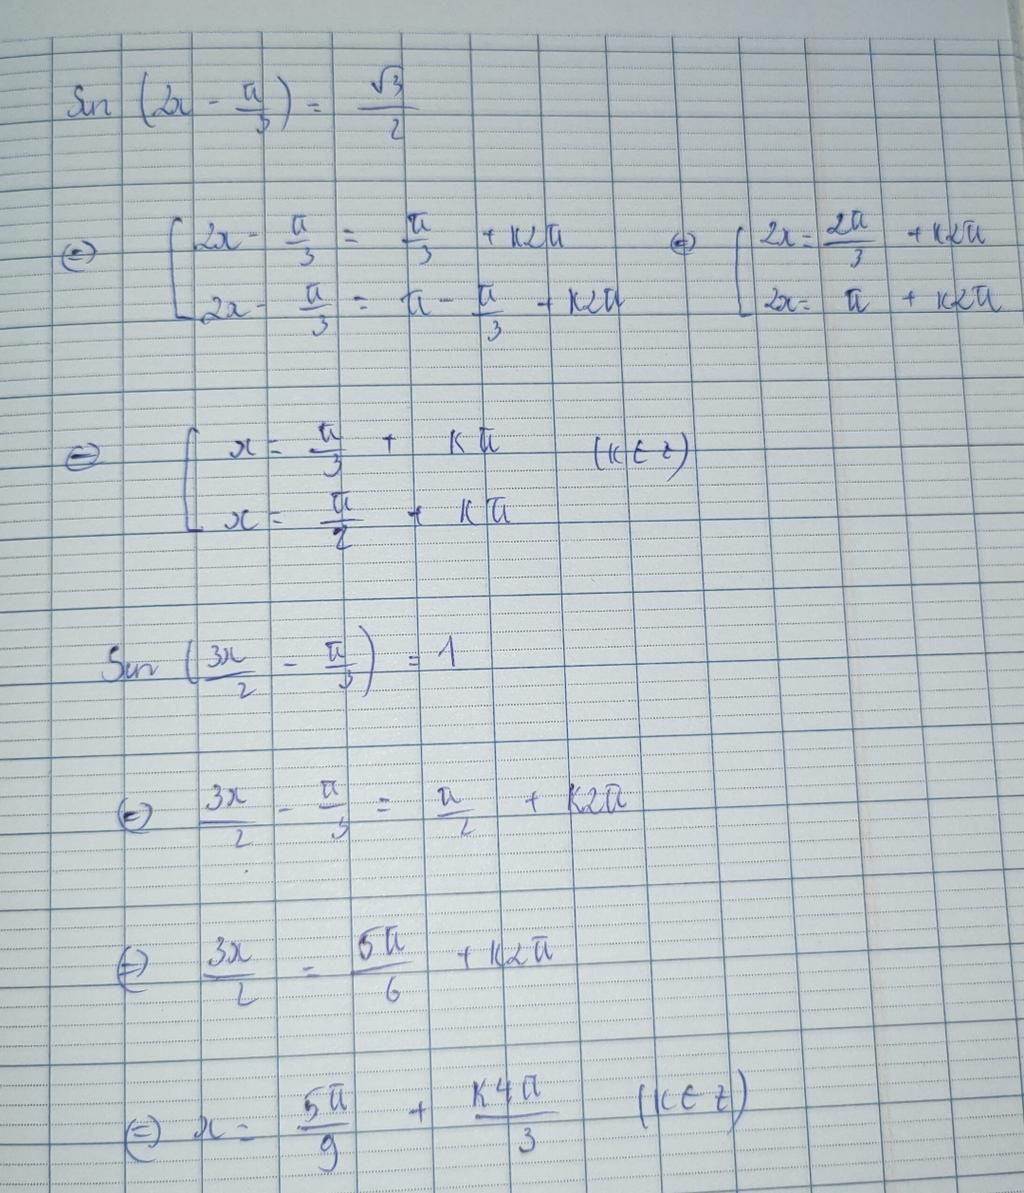 Sin (2x - π/3) = √3/2
⇔ [ 2x - π/3 = π/3 + K2π ⇔ [ 2x = 2π/3 + K2π
2x - π/3 = π - π/3 + K2π 2x = π + K2π
⇔ [ x = π/3 + Kπ (K ∈ Z)
x = π/2 + Kπ
Sin (3x/2 - π/3) = 1
⇔ 3x/2 - π/3 = π/2 + K2π
⇔ 3x/2 = 5π/6 + K2π
⇔ x = 5π/9 + K4π/3 (K ∈ Z)